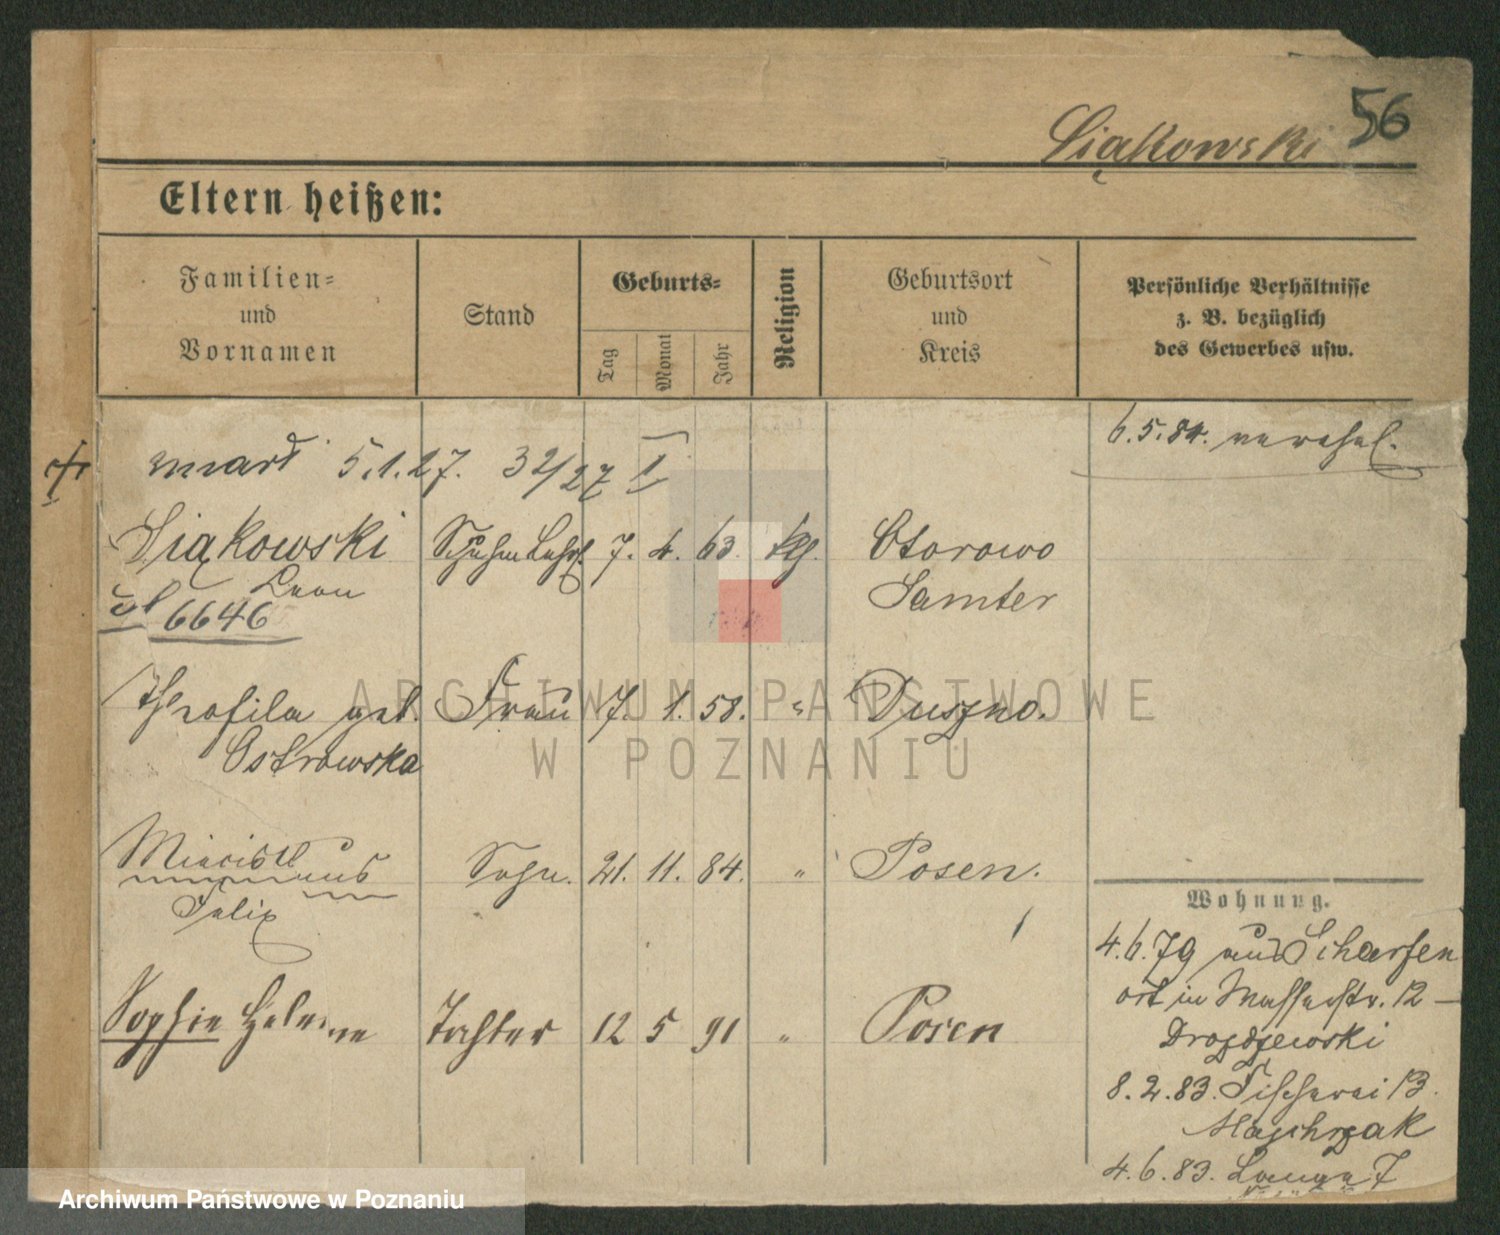 56
Siąkowski
Eltern heißen:
Familien=
und
Vornamen
Stand
Geburts=
Tag
Monat
Jahr
Religion
Geburtsort
und
Kreis
Persönliche Verhältnisse
z. B. bezüglich
des Gewerbes usw.
6.5.84. verehel.
5.1.27. 32/27 I
Siąkowski 7. 4. 63. kth. Otorowo
Leon Samter
6646
Theofila geb. Frau 7. 1. 58. " Duszno.
Ostrowska
Miecislaus Sohn. 21. 11. 84. " Posen.
Felix
Sophie Helene Tochter 12 5 91 " Posen
Wohnung.
4.6.79 aus Scharfen
ort in Wasserstr. 12 —
Drozdzewski
8.2.83. Fischerei 13.
Majchrzak
4.6.83. Lange 7
ARCHIWUM PAŃSTWOWE
W POZNANIU
Archiwum Państwowe w Poznaniu